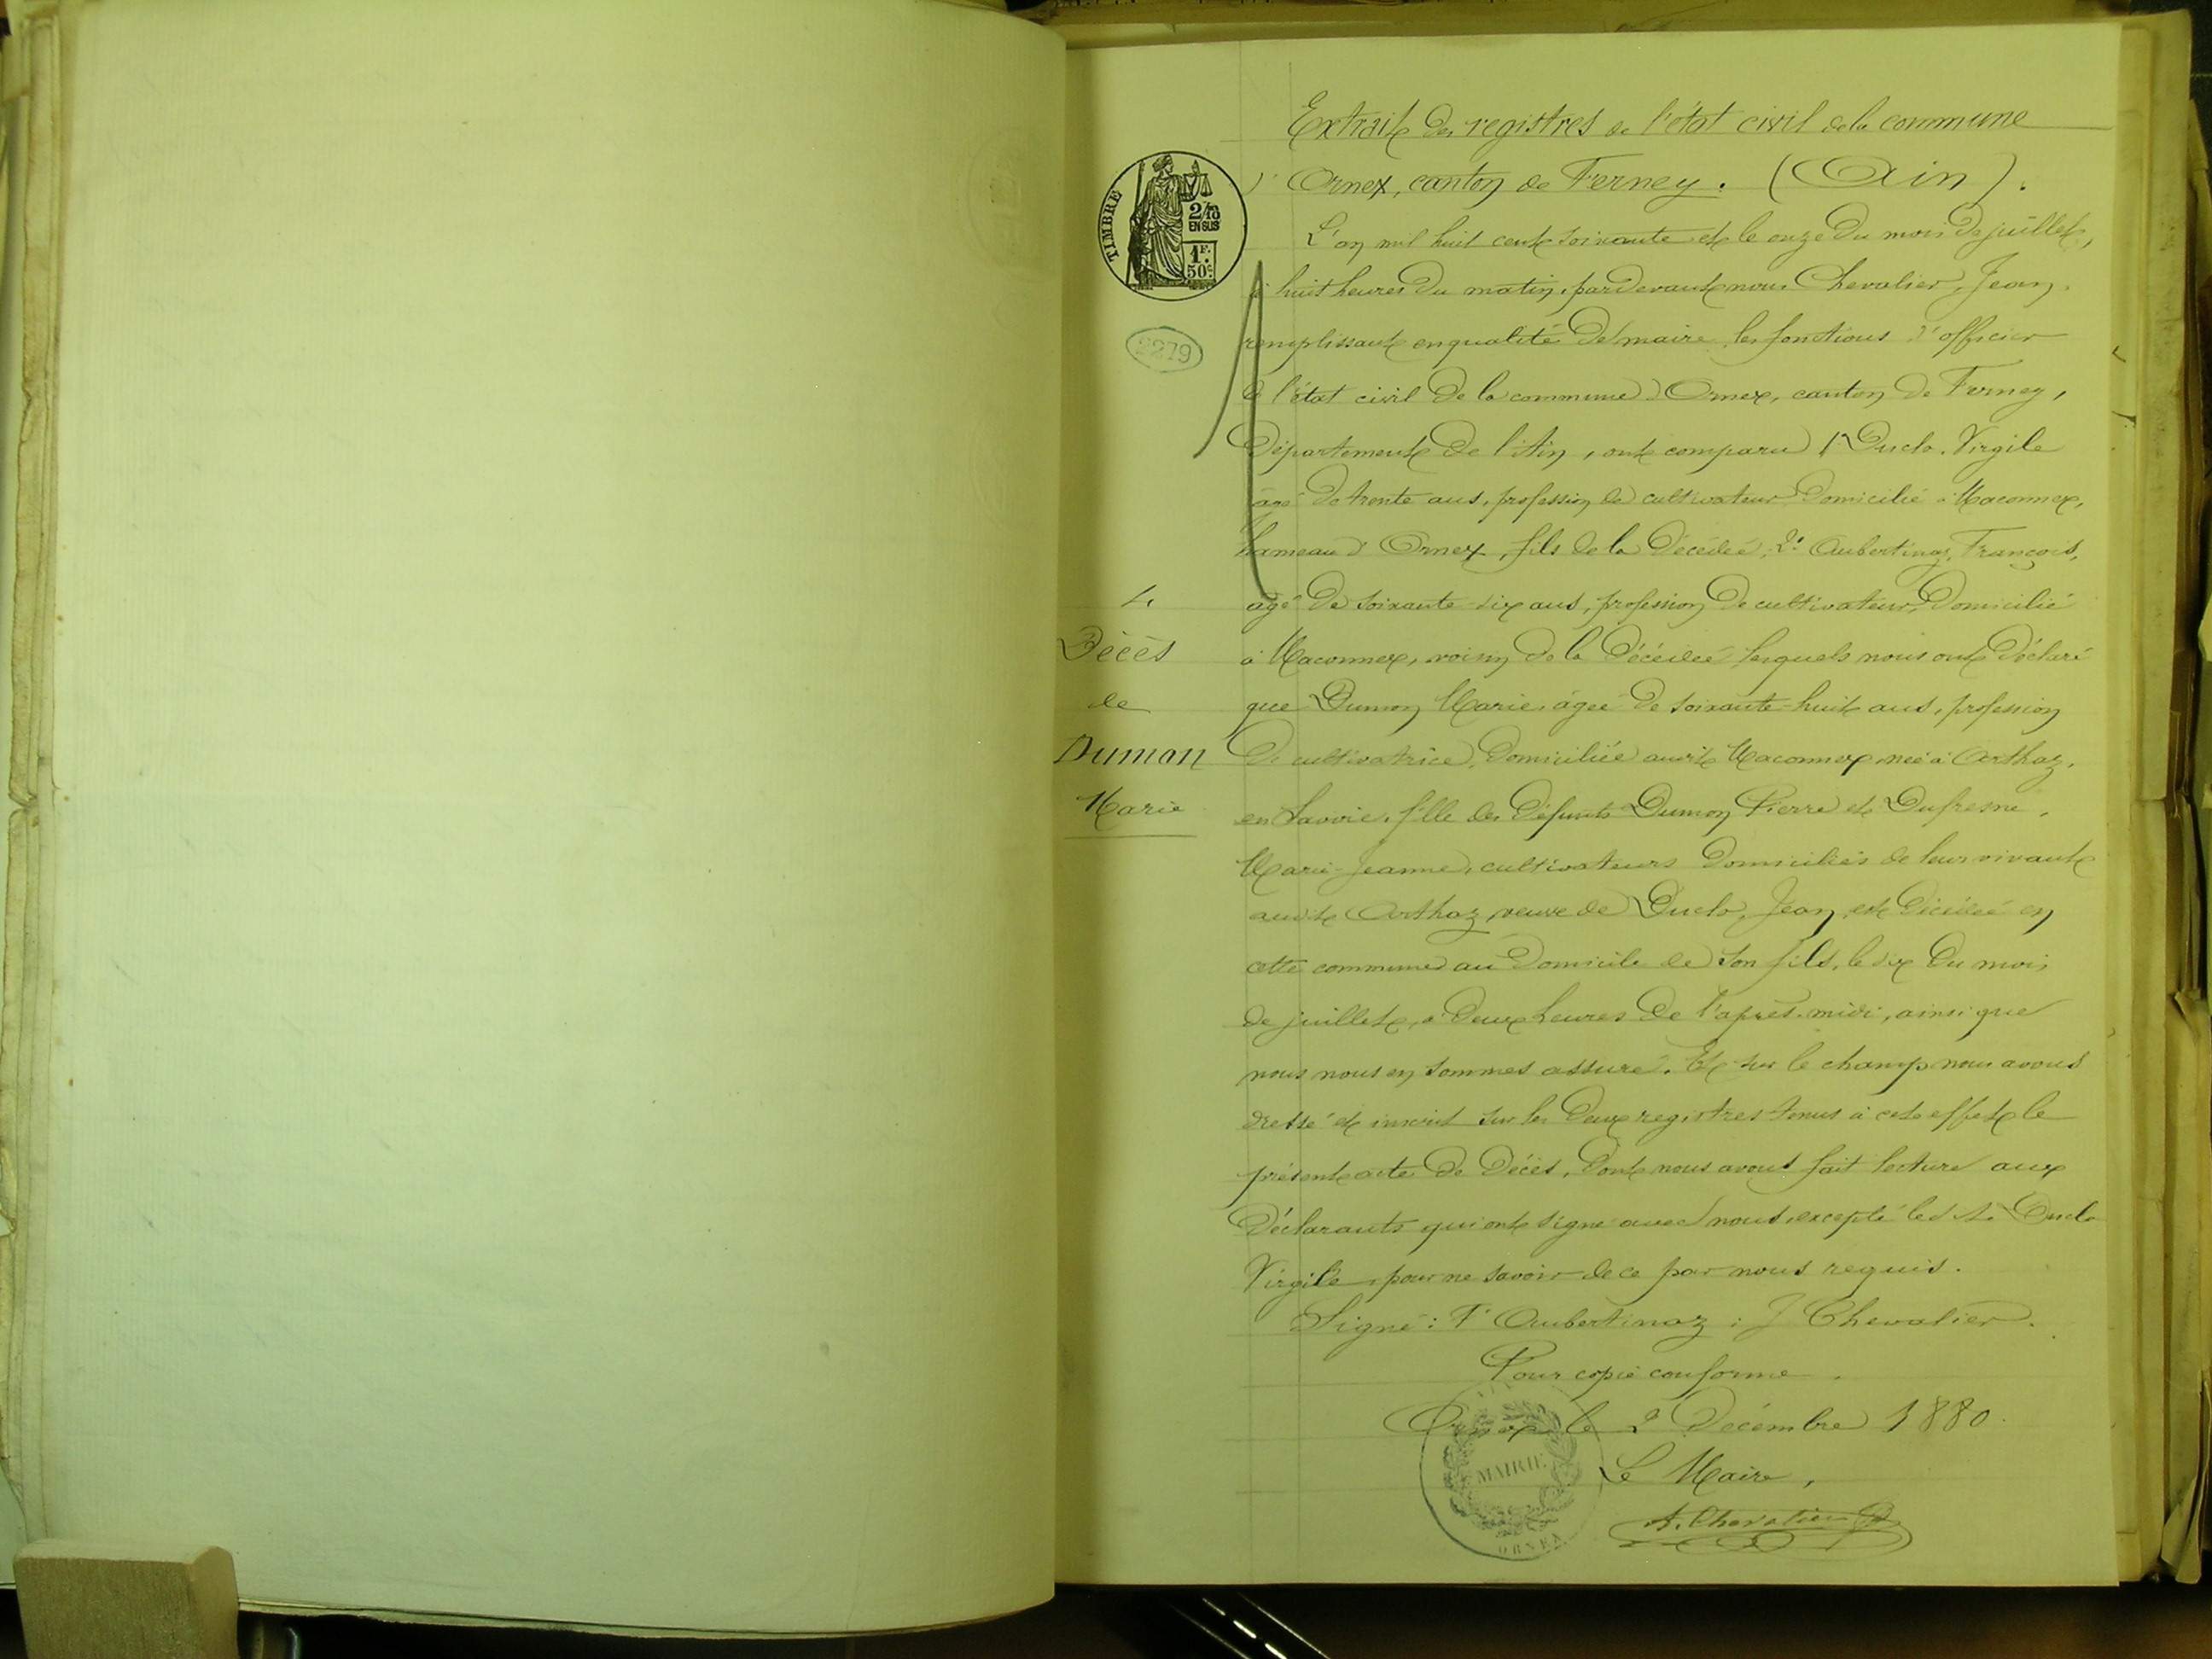 Extrait des registres de l'état civil de la commune
d'Ornex, canton de Ferney. (Ain).
TIMBRE
2/10
EN SUS
1F.
50c
2279
L'an mil huit cent soixante et le onze du mois de juillet,
à huit heures du matin, par devant nous Chevalier, Jean,
remplissant en qualité de maire les fonctions d'officier
de l'état civil de la commune d'Ornex, canton de Ferney,
département de l'Ain, ont comparu 1° Duclo, Virgile
âgé de trente ans, profession de cultivateur domicilié à Maconnex,
hameau d'Ornex, fils de la décédée, 2° Aubertinaz, François,
âgé de soixante-dix ans, profession de cultivateur, domicilié
à Maconnex, voisin de la décédée lesquels nous ont déclaré
que Dumon Marie, âgée de soixante-huit ans, profession
de cultivatrice, domiciliée audit Maconnex née à Arthaz,
en Savoie, fille des défunts Dumon Pierre et Dufresne,
Marie-Jeanne, cultivateurs domiciliés de leur vivant
audit Arthaz, veuve de Duclo, Jean, est décédée en
cette commune au domicile de son fils, le dix du mois
de juillet, à deux heures de l'après-midi, ainsi que
nous nous en sommes assuré. Et sur le champ nous avons
dressé et inscrit sur les deux registres tenus à cet effet le
présent acte de décès, dont nous avons fait lecture aux
déclarants qui ont signé avec nous, excepté led. Sr Duclo
Virgile, pour ne savoir de ce par nous requis.
Signé: F. Aubertinaz; J Chevalier.
Pour copie conforme.
Ornex le 2 Décembre 1880.
Le Maire,
A. Chevalier
MAIRIE
ORNEX
4
Décès
de
Dumon
Marie